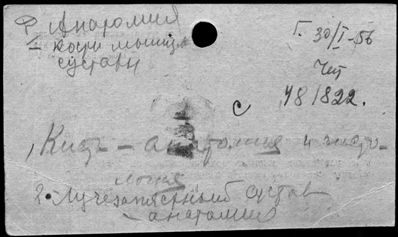 Анатомия
кости мышцы
суставы
Г. 30/I-56
Чт
с 48/822.
1, Кисть - анатомия и физио-
логия
2. Лучезапястный сустав
- анатомия